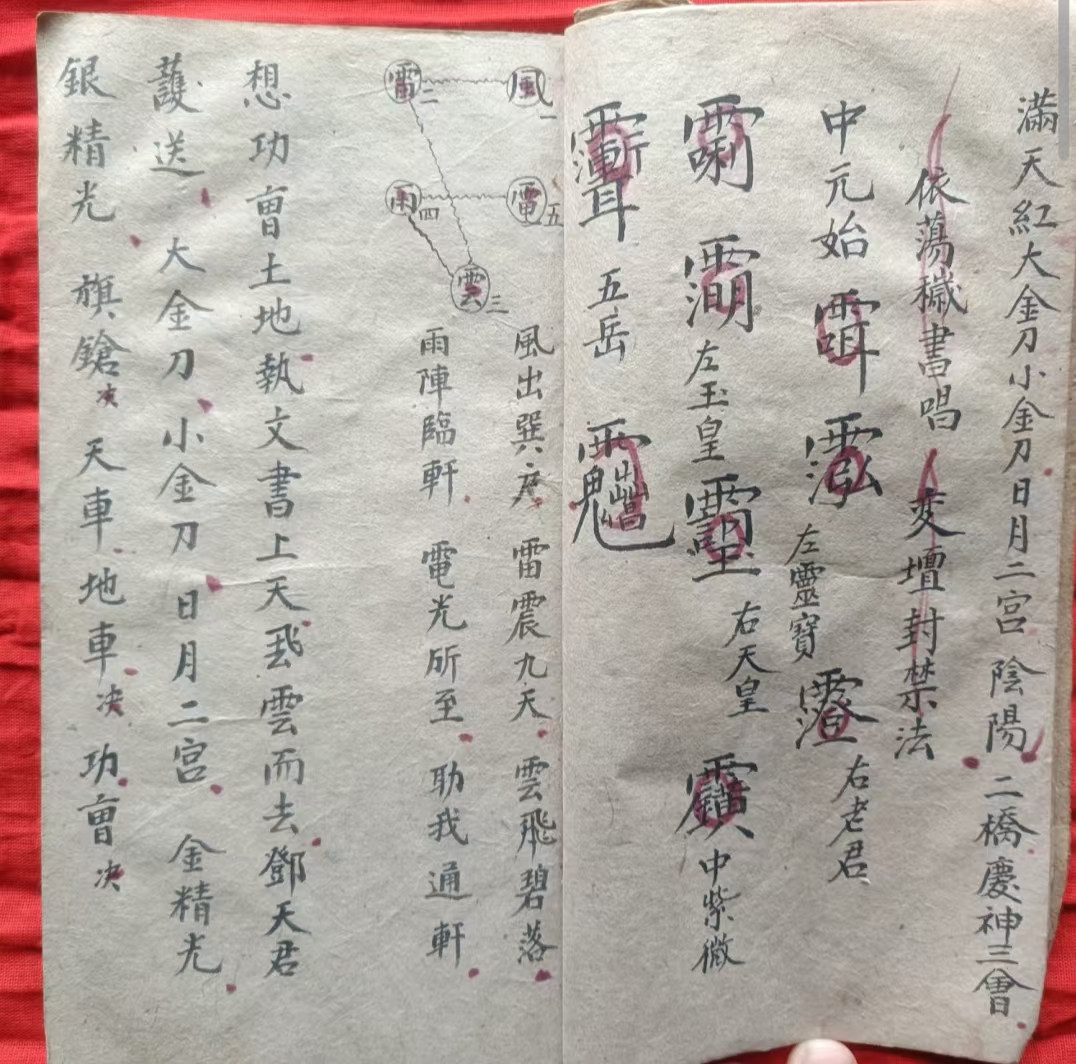 滿天紅大金刀小金刀日月二宮 陰陽 二橋慶神三會
依蕩穢書唱 変壇封禁法
中元始 左靈寶 右老君
左玉皇 右天皇 中紫微
五岳
風一
雷二
電五
雨四
雲三
風出巽 雷震九天 雲飛碧落
雨陣臨軒 電光所至 助我通軒
想功曺土地執文書上天 雲而去鄧天君
護送 大金刀 小金刀 日月二宮 金精光
銀精光 旗鎗决 天車地車决 功曺决